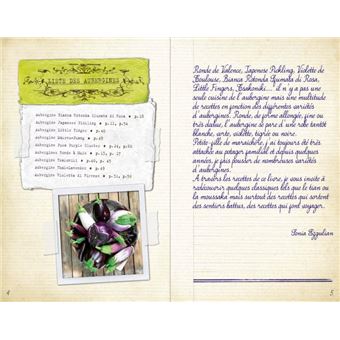 LISTE DES AUBERGINES
Aubergine Bianca Rotonda Sfumata di Rosa • p.18
Aubergine Japanese Pickling • p.11, p.54
Aubergine Little Finger • p.45
Aubergine
Aubergine Pure Purple Cluster • p.24, p.58
Aubergine Ronde à Main • p.13, p.27
Aubergine
Aubergine
Aubergine Violette di Firenze • p.34, p.56
Ronde de Valence, Japanese Pickling, Violette de
Toulouse, Bianca Rotonda Sfumata di Rosa,
Little Fingers, Tsakoniki... il n'y a pas une
seule cuisine de l'aubergine mais une multitude
de recettes en fonction des différentes variétés
d'aubergines. Ronde, de forme allongée, fine ou
très dodue, l'aubergine se pare d'une robe tantôt
blanche, verte, violette, tigrée ou noire.
Petite-fille de maraîchère, j'ai toujours été très
attachée au potager familial et depuis quelques
années, je fais pousser de nombreuses variétés
d'aubergines.
A travers les recettes de ce livre, je vous invite à
redécouvrir quelques classiques tels que le tian ou
la moussaka mais surtout des recettes qui sortent
des sentiers battus, des recettes qui font voyager.
Sonia Ezgulian
4
5